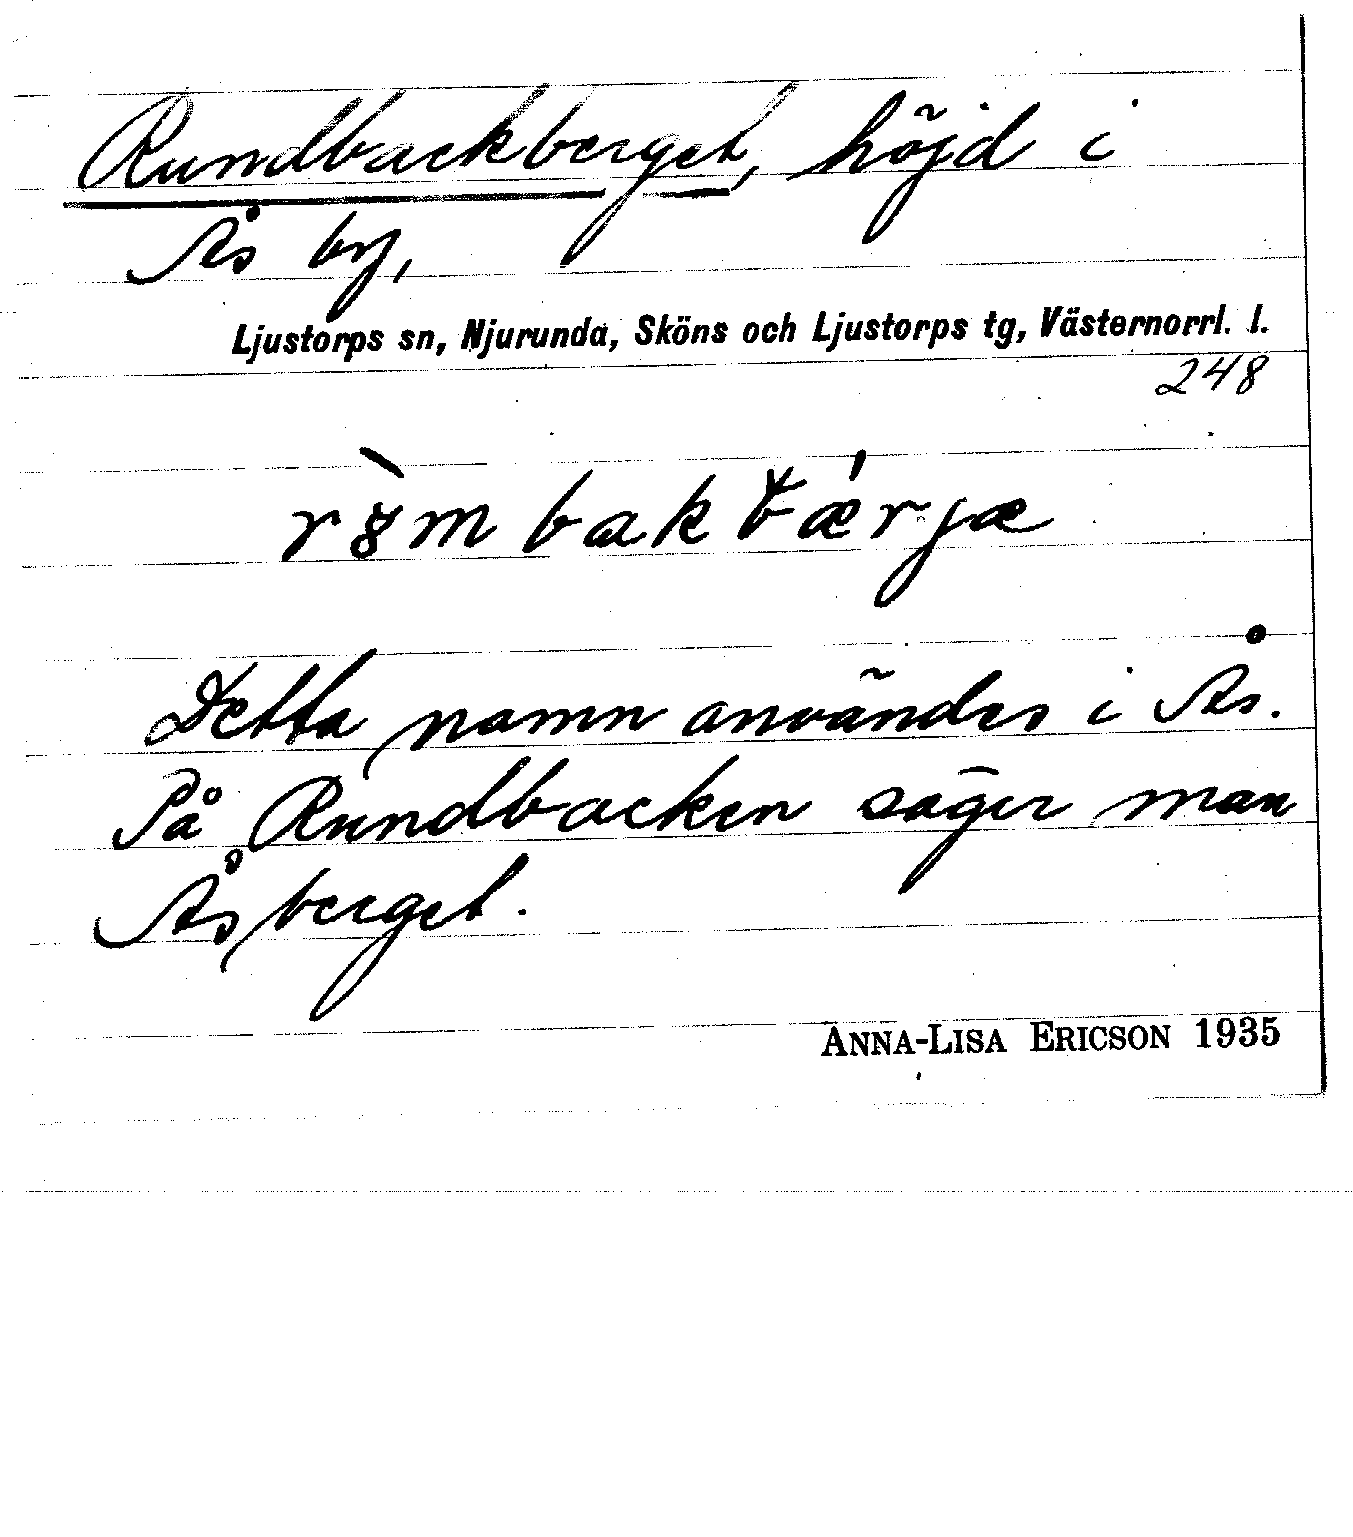 Rundbackberget, höjd i
Ås by,
Ljustorps sn, Njurunda, Sköns och Ljustorps tg, Västernorrl. l.
248
Detta namn användes i Ås.
På Rundbacken säger man
Åsberget.
ANNA-LISA ERICSON 1935